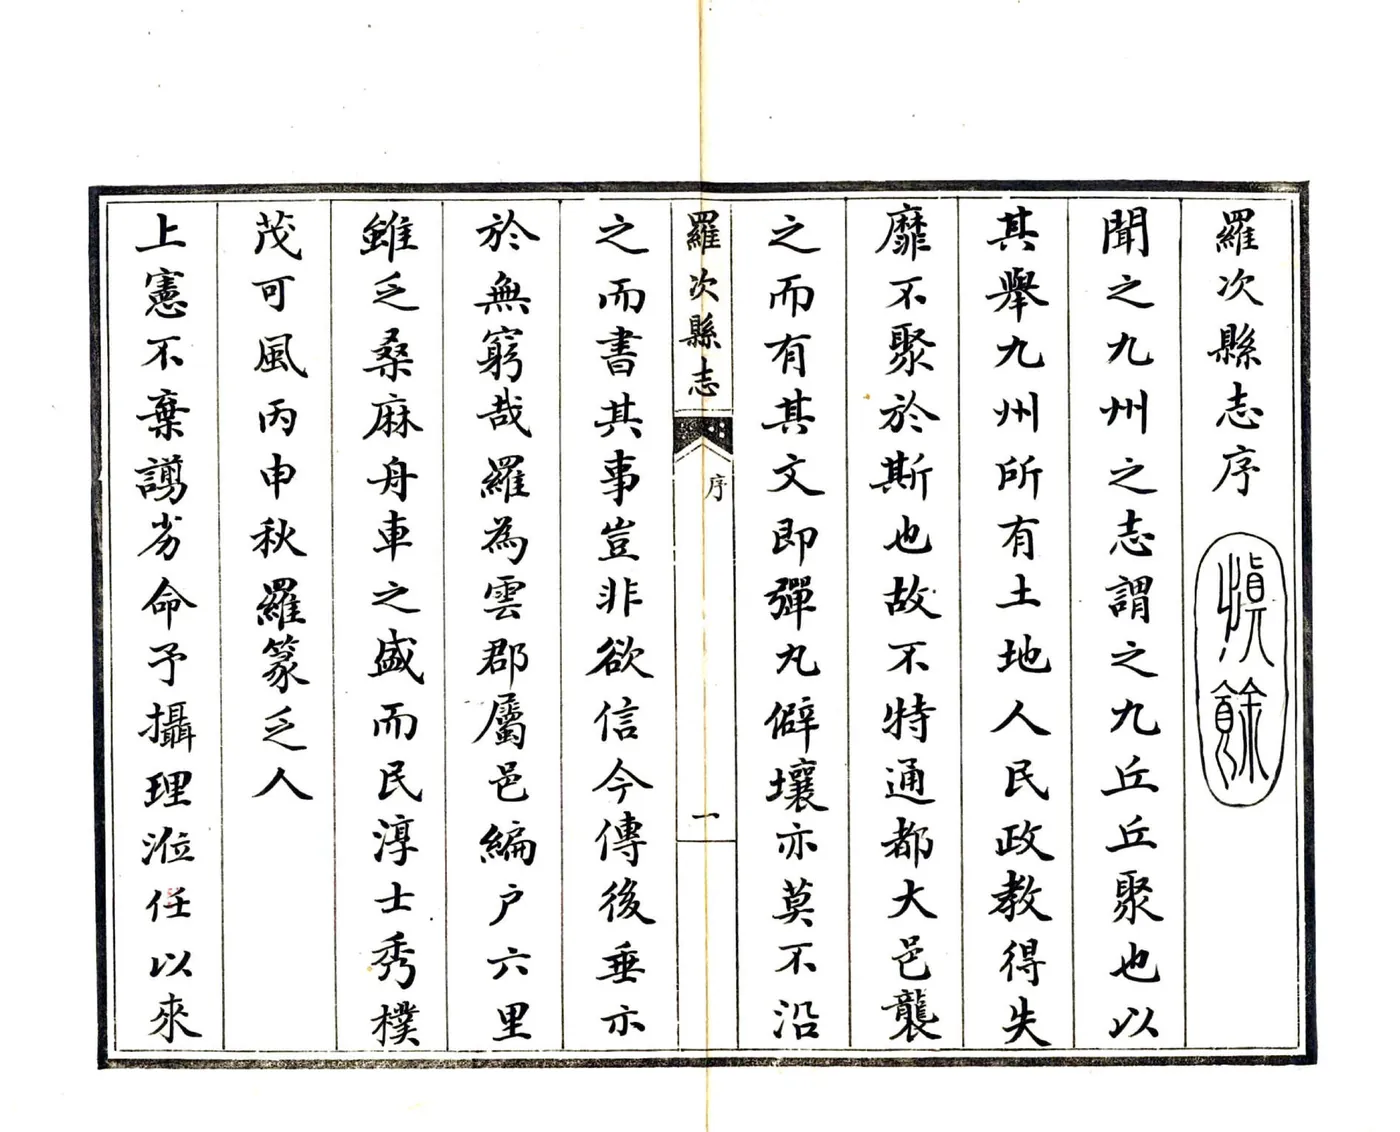 羅次縣志序
慎餘
聞之九州之志謂之九丘丘聚也以
其舉九州所有土地人民政教得失
靡不聚於斯也故不特通都大邑襲
之而有其文即彈丸僻壤亦莫不沿
羅次縣志
序
一
之而書其事豈非欲信今傳後垂示
於無窮哉羅為雲郡屬邑編户六里
雖乏桑麻舟車之盛而民淳士秀樸
茂可風丙申秋羅篆乏人
上憲不棄譾劣命予攝理涖任以來